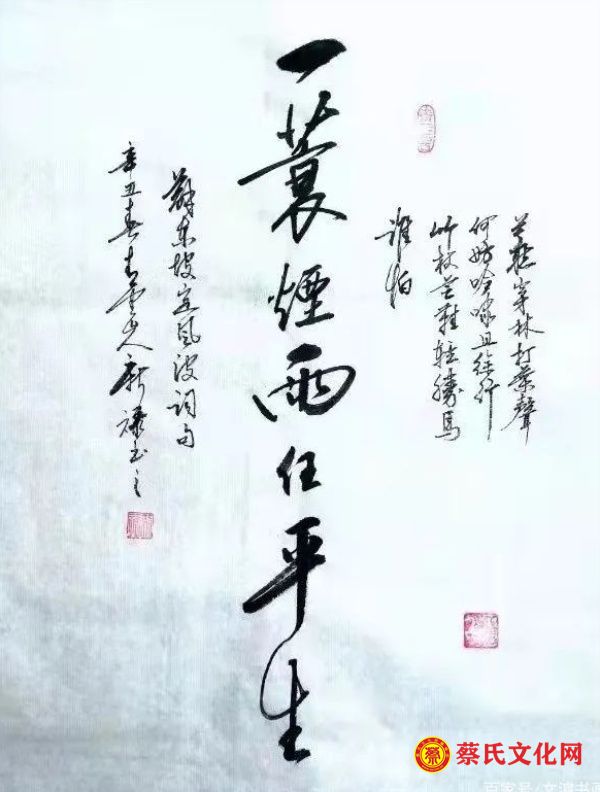 莫聽穿林打葉聲
何妨吟嘯且徐行
竹杖芒鞋輕勝馬
誰怕
一蓑煙雨任平生
蘇東坡定風波詞句
辛丑春青雲山人新禄书之
蔡氏文化网
百家号/文滨书画